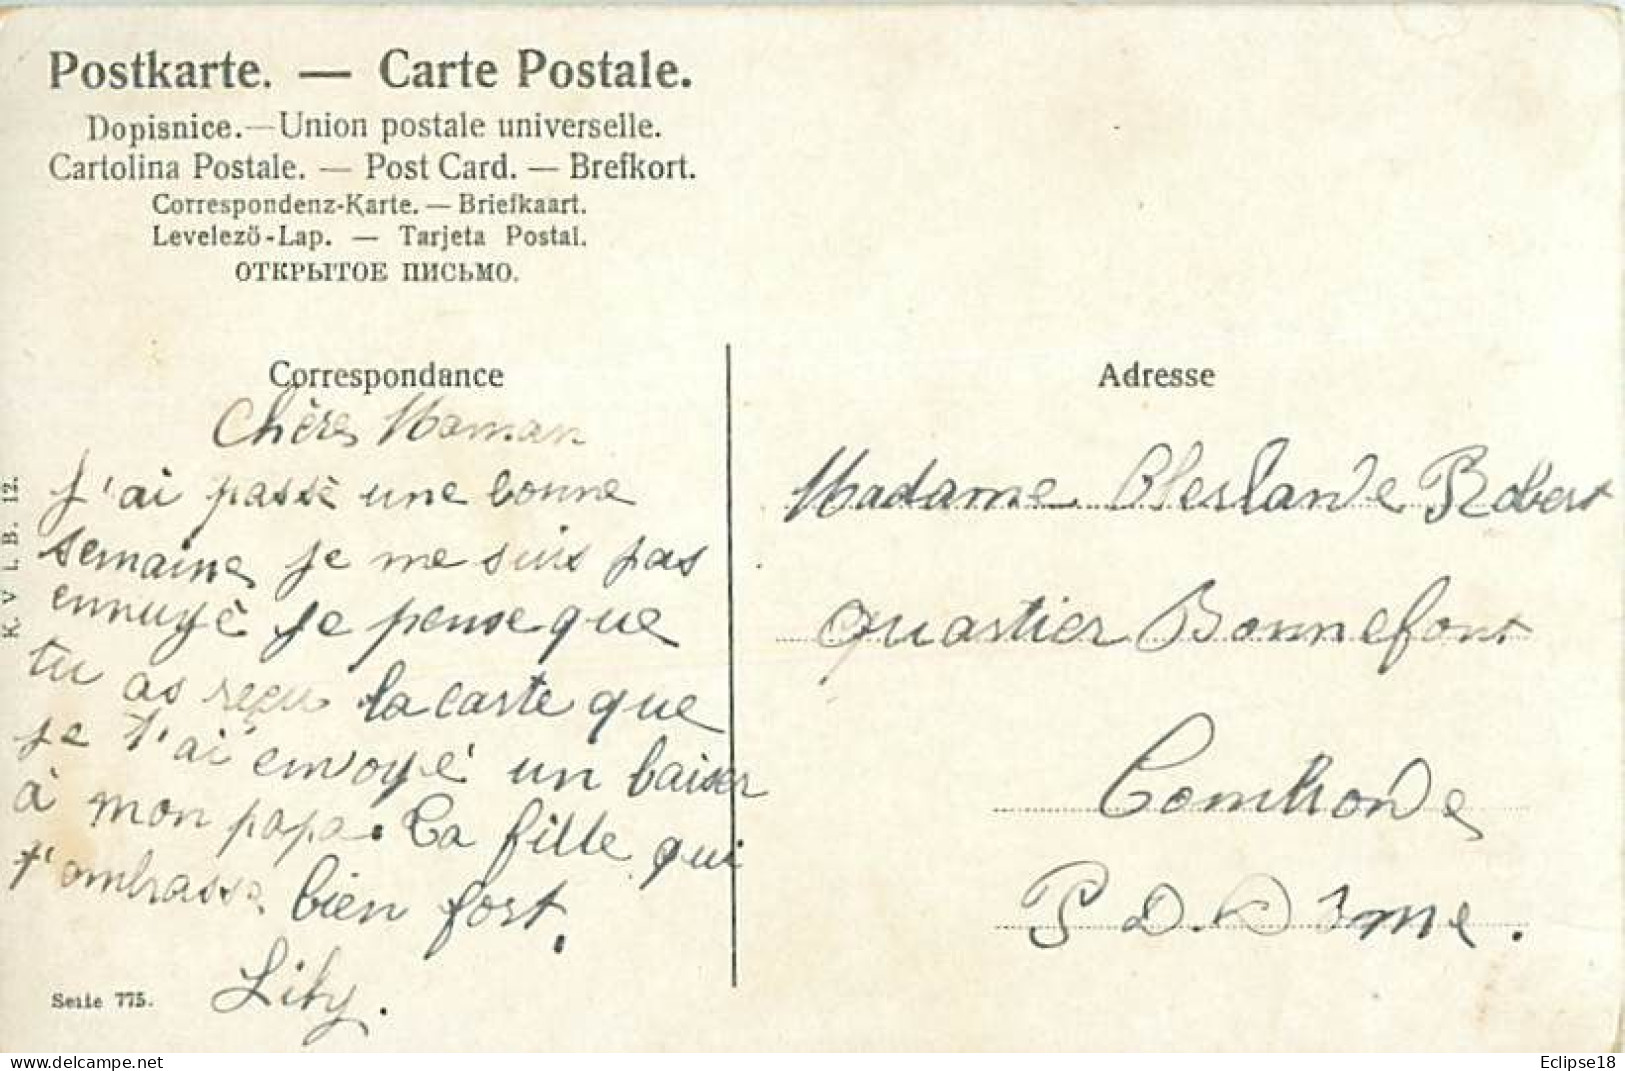 Postkarte. — Carte Postale.
Dopisnice. — Union postale universelle.
Cartolina Postale. — Post Card. — Brefkort.
Correspondenz-Karte. — Briefkaart.
Levelező-Lap. — Tarjeta Postal.
ОТКРЫТОЕ ПИСЬМО.
Correspondance
Chères Maman
J'ai passé une bonne
semaine je me suis pas
ennuyé je pense que
tu as reçu la carte que
je t'ai envoyé un baiser
à mon papa. Ta fille qui
t'embrasse bien fort.
Lily.
Serie 775.
K. V i. B. 12.
Adresse
Madame Robert
Quartier Bonnefont
Combronde
P. D. Dôme.
Eclipse18
www.delcampe.net